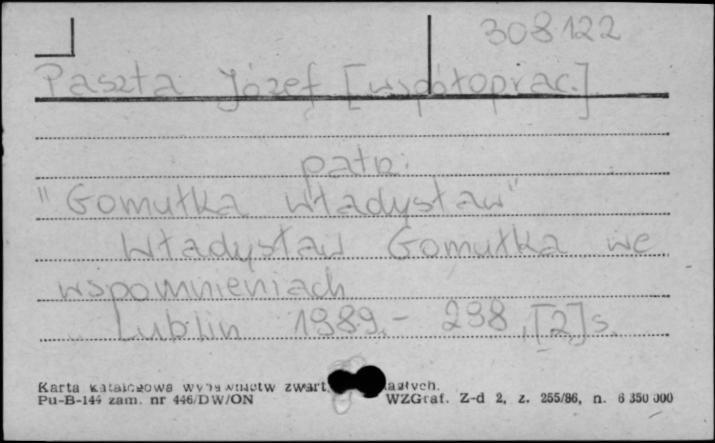 308122
Paszta Józef [współoprac.]
patrz:
"Gomułka Władysław"
Władysław Gomułka we
wspomnieniach
Lublin 1989.- 298, [2] s.
Karta katalogowa wydawnictw zwart
Pu-B-144 zam. nr 446/DW/ON WZGraf. Z-d 2, z. 255/86, n. 6 350 000